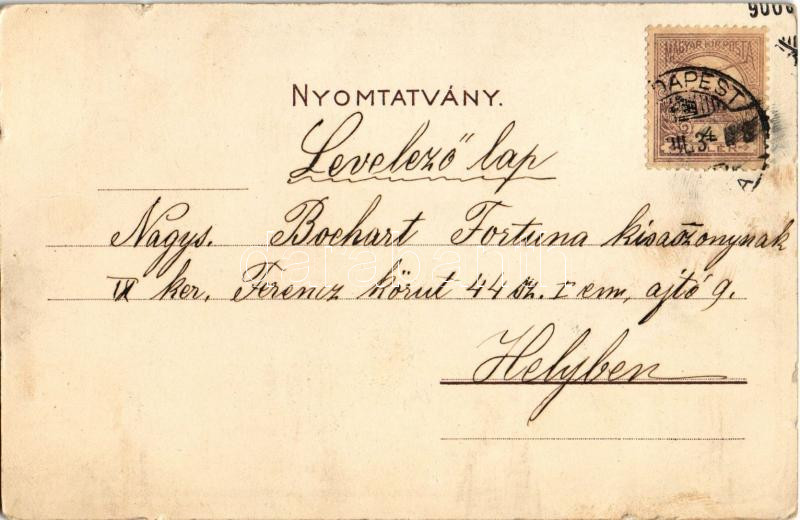 NYOMTATVÁNY.
MAGYAR KIR. POSTA
BUDAPEST
Levelező lap
Nagys. Bochart Fortuna kisaszonynak
IX ker. Ferencz körut 44 sz. I em, ajtó 9.
Helyben